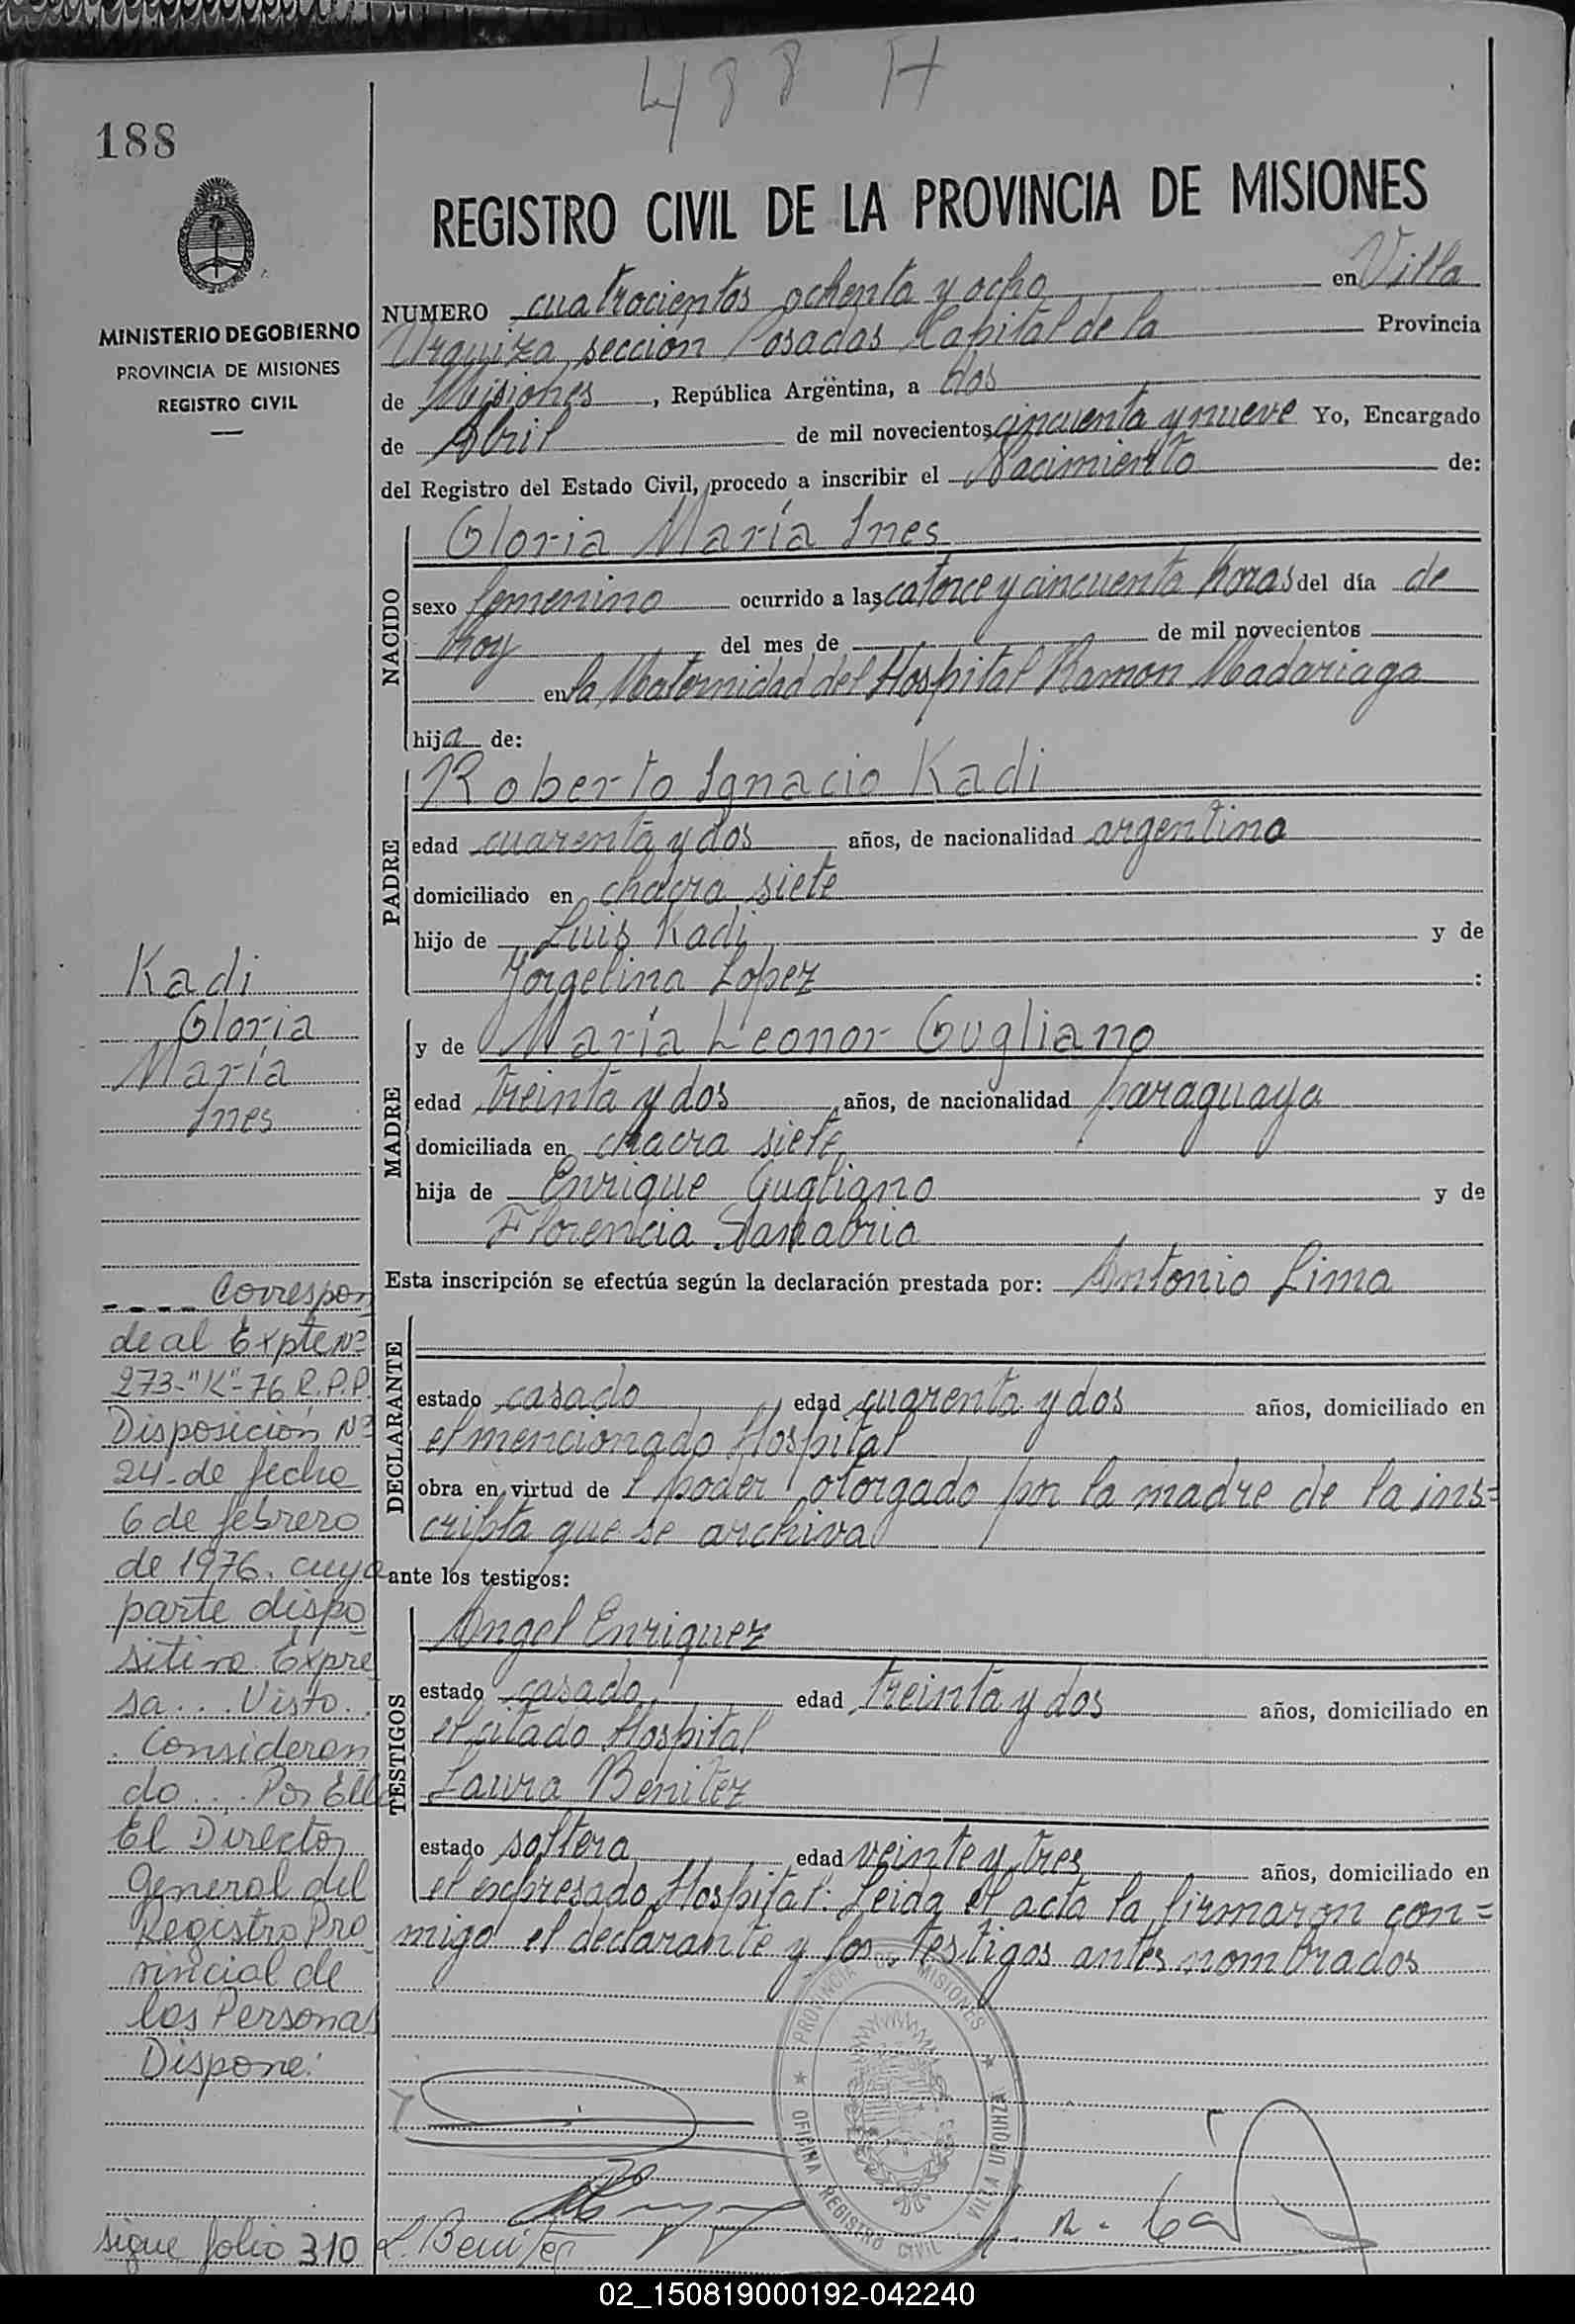 488 H
188
MINISTERIO DE GOBIERNO
PROVINCIA DE MISIONES
REGISTRO CIVIL
REGISTRO CIVIL DE LA PROVINCIA DE MISIONES
NUMERO cuatrocientos ochenta y ocho en Villa
Urquiza sección Posadas Capital de la Provincia
de Misiones, República Argentina, a dos
de Abril de mil novecientos cincuenta y nueve Yo, Encargado
del Registro del Estado Civil, procedo a inscribir el Nacimiento de:
NACIDO
Gloria María Ines
sexo femenino ocurrido a las catorce y cincuenta horas del día de
hoy del mes de de mil novecientos
en la Maternidad del Hospital Ramon Madariaga
hija de:
PADRE
Roberto Ignacio Kadi
edad cuarenta y dos años, de nacionalidad argentina
domiciliado en chacra siete
hijo de Luis Kadi y de
Jorgelina Lopez :
MADRE
y de María Leonor Gugliano
edad treinta y dos años, de nacionalidad paraguaya
domiciliada en chacra siete
hija de Enrique Gugliano y de
Florencia Sanabria
Esta inscripción se efectúa según la declaración prestada por: Antonio Lima
DECLARANTE
estado casado edad cuarenta y dos años, domiciliado en
el mencionado Hospital
obra en virtud de l poder otorgado por la madre de la ins=
cripta que se archiva
ante los testigos:
TESTIGOS
Angel Enriquez
estado casado edad treinta y dos años, domiciliado en
el citado Hospital
Laura Benitez
estado soltera edad veinte y tres años, domiciliado en
el expresado Hospital. Leida el acta la firmaron con=
migo el declarante y los testigos antes nombrados
Kadi
Gloria
María
Ines
---- Correspon
de al Expte Nº
273-"K"-76 R.P.P.
Disposición Nº
24- de fecha
6 de febrero
de 1976. cuya
parte dispo
sitiva Expre
sa... Visto..
. Consideran
do... Por Ello
El Director
General del
Registro Pro
vincial de
las Personas
Dispone:
sigue folio 310
L. Benitez
PROVINCIA DE MISIONES
OFICINA REGISTRO CIVIL VILLA URQUIZA
02_150819000192-042240